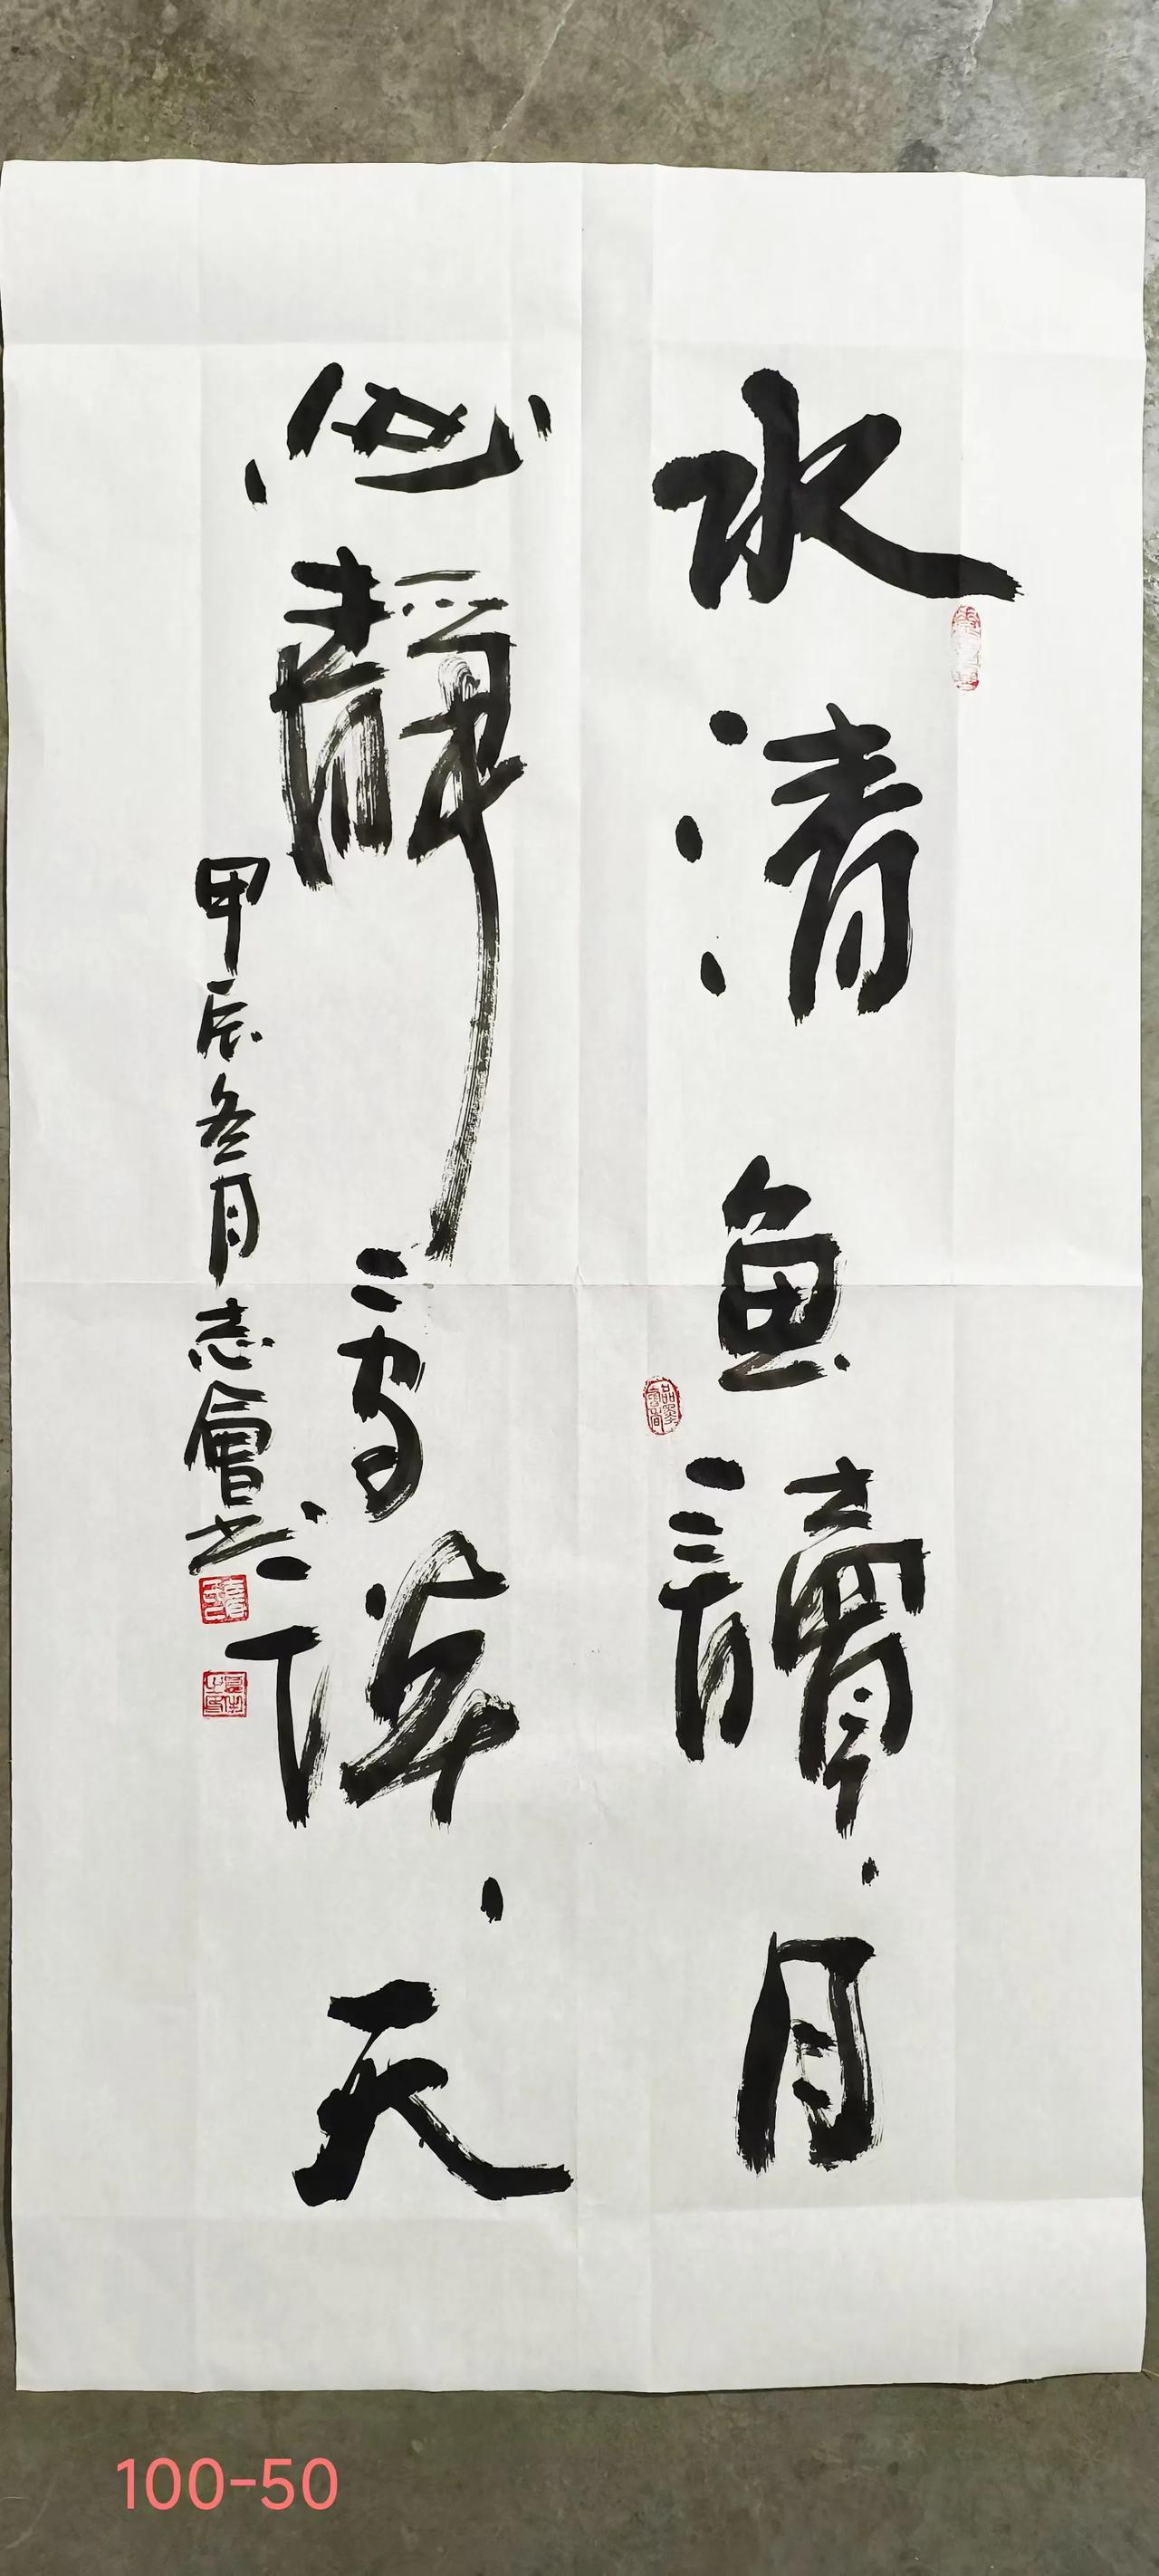 水清鱼讀月
靜鳥談天
甲辰冬月志會书
100-50